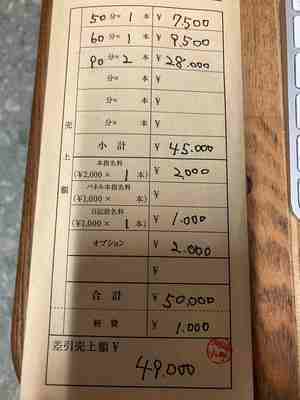 50分× 1 本 ¥ 7.500
60分× 1 本 ¥ 9.500
90分× 2 本 ¥ 28.000
分× 本 ¥
分× 本 ¥
分× 本 ¥
売上額
小計 ¥ 45.000
本指名料
(¥2,000× 1 本) ¥ 2,000
パネル本指名料
(¥1,000× 本) ¥
日記指名料
(¥1,000× 1 本) ¥ 1.000
オプション ¥ 2.000
¥
合計 ¥ 50,000
雑費 ¥ 1.000
差引売上額 ¥
49.000